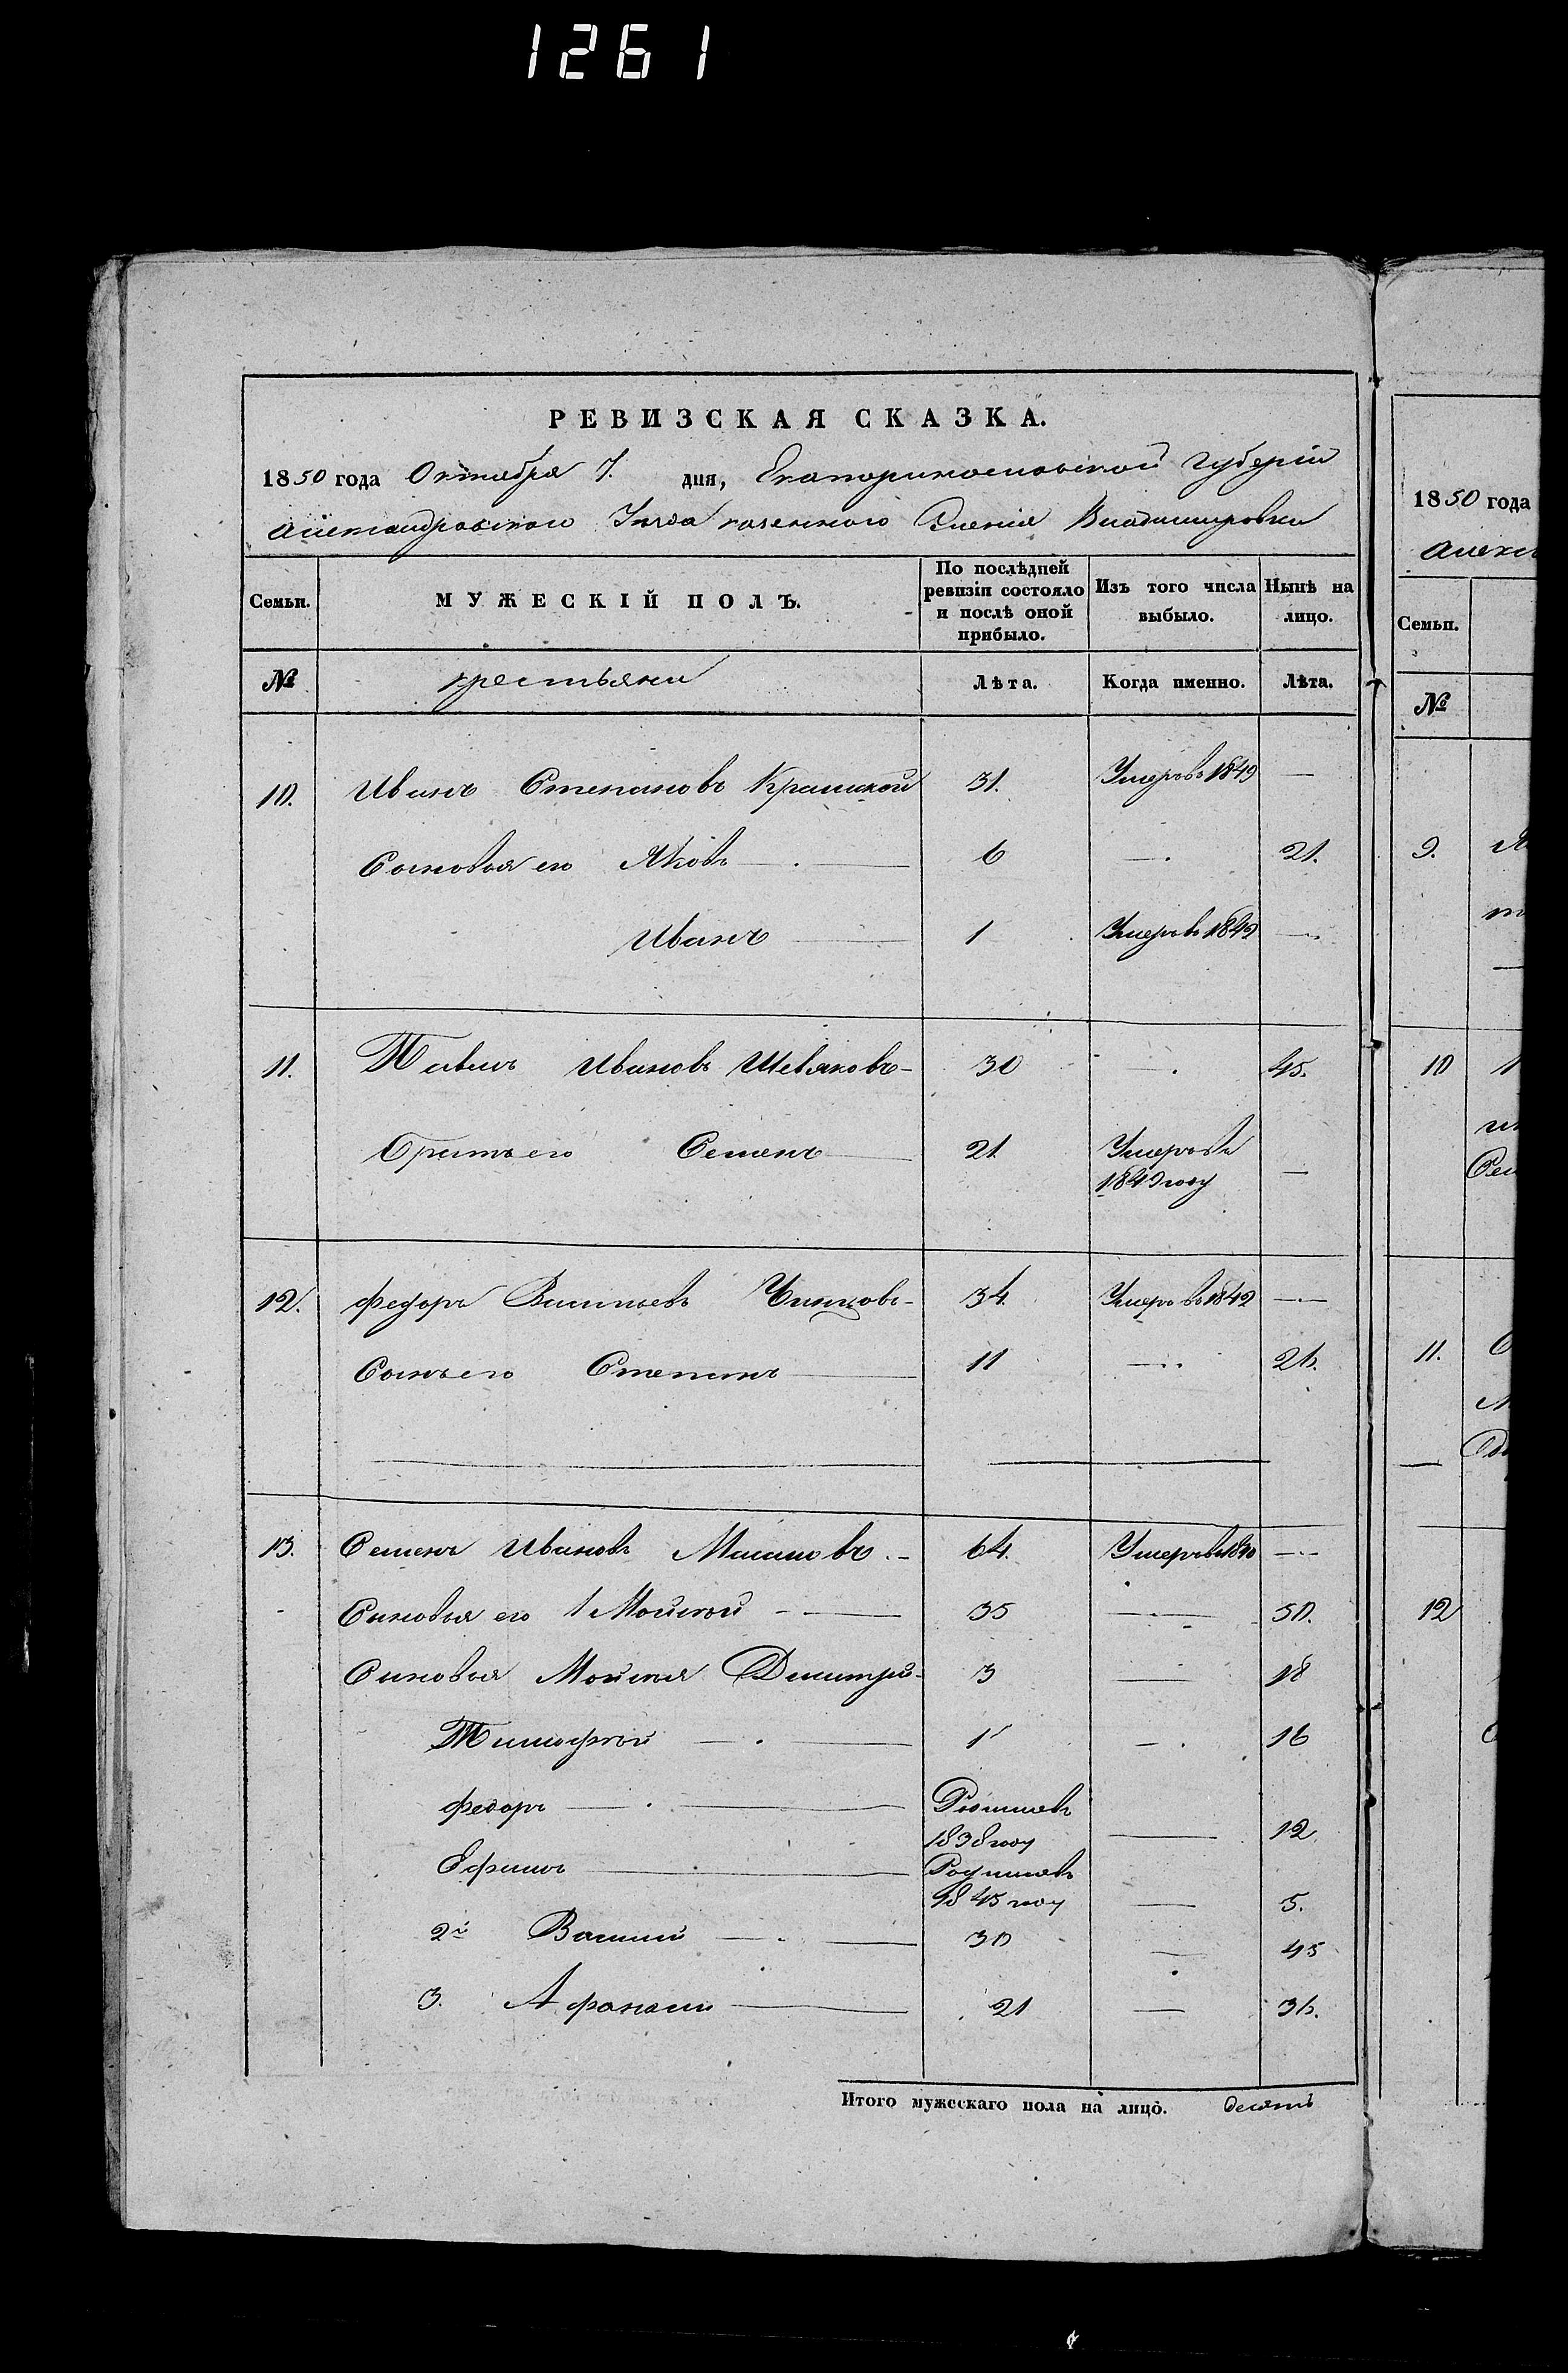 1261
РЕВИЗСКАЯ СКАЗКА.
1850 года Октября 7. дня, Екатеринославской губерніи
Александровского Уезда казенного Селенія Владимировки
Семьи. МУЖЕСКІЙ ПОЛЪ. По послѣдней ревизіи состояло и послѣ оной прибыло. Изъ того числа выбыло. Нынѣ на лицо.
№ крестьяни Лѣта. Когда именно. Лѣта.
10. Иванъ Степановъ 31. Умеръ въ 1849 —
Сыновья его Яковъ — 6 — 21.
Иванъ — 1 Умеръ въ 1842 —
11. Павелъ Ивановъ Шевяковъ - 30 — 45.
Братъ его Семенъ — 21 Умеръ въ
1849 году —
12. Федоръ Васильевъ 34. Умеръ въ 1842 —
Сынъ его Степанъ — 11 — 26.
13. Семенъ Ивановъ 64. Умеръ въ 1840 —
Сыновья его 1 Мойсей — 35 — 50.
Сыновья Мойсея Димитрій - 3 — 18
Тимофѣй — 1 — 16
Федоръ — Родился въ
1838 году — 12
Ефимъ — Родился въ
1845 году — 5.
2й Василий — 30 — 45
3. Афанасий — 21 — 36.
Итого мужескаго пола на лицо. десять
1850 года
Алекс
Семьи.
№
9.
10
11.
12